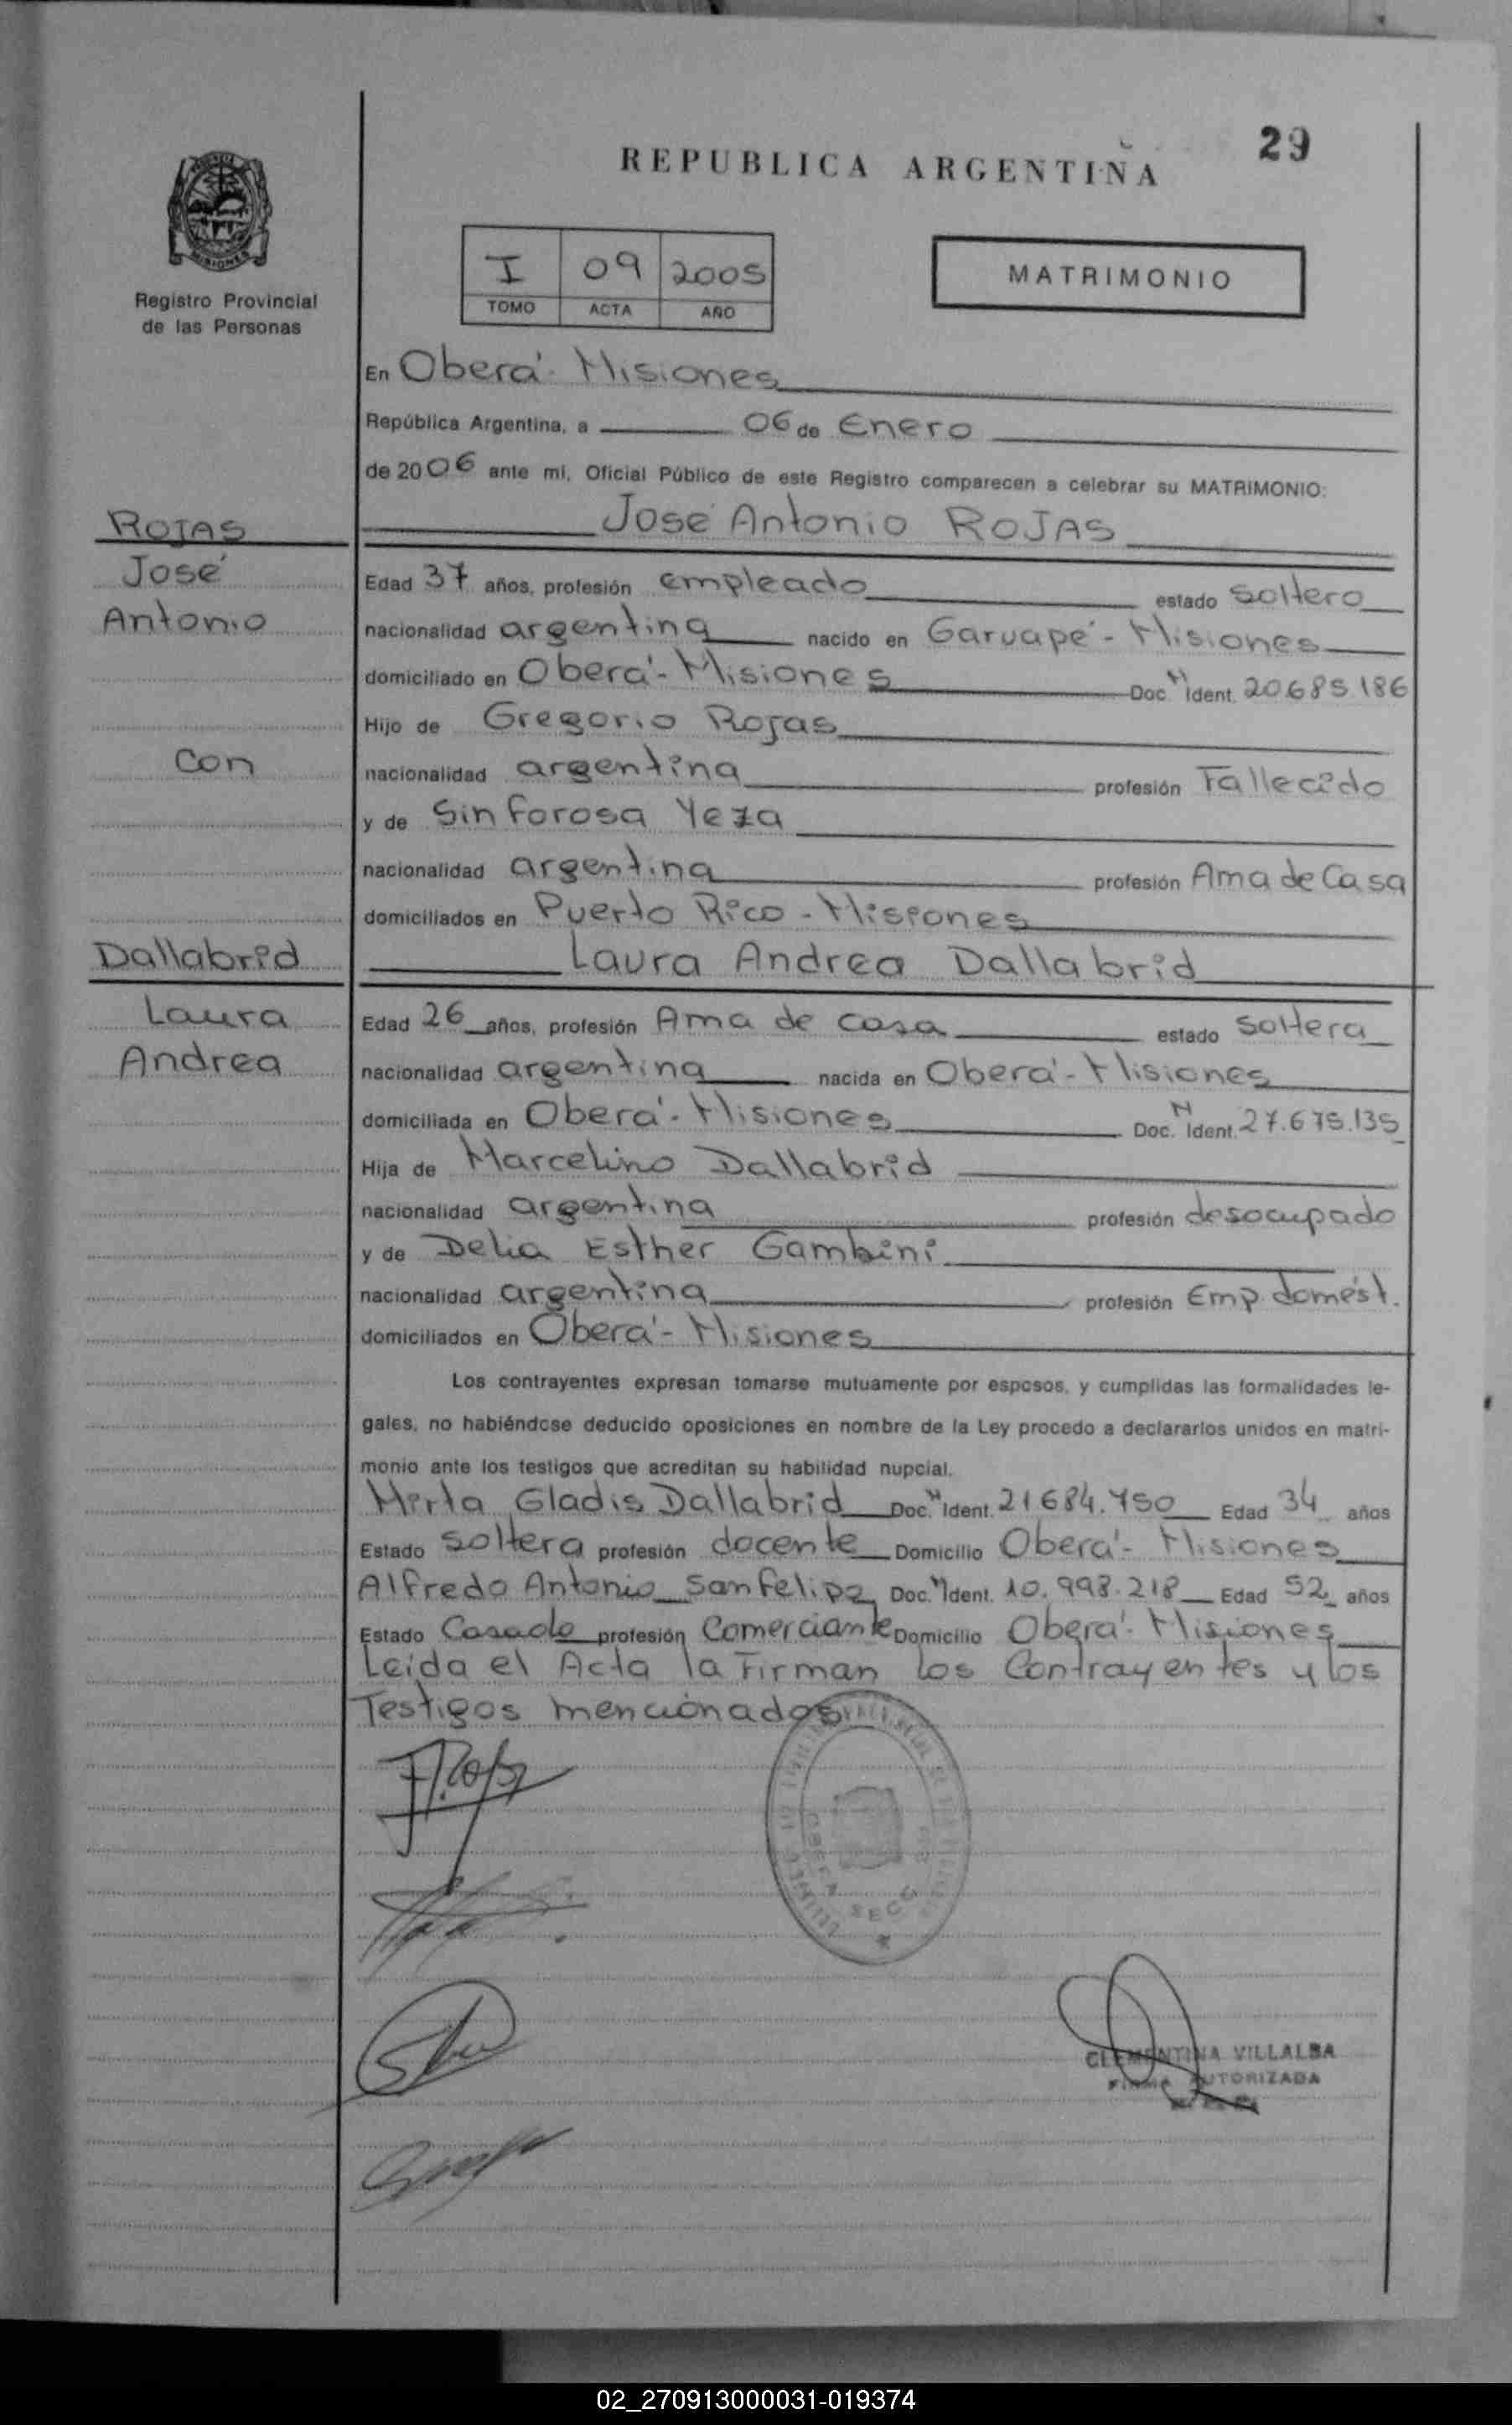 29
REPUBLICA ARGENTINA
MISIONES
Registro Provincial
de las Personas
I 09 2005
TOMO ACTA AÑO
MATRIMONIO
En Oberá - Misiones
República Argentina, a 06 de Enero
de 2006 ante mi, Oficial Público de este Registro comparecen a celebrar su MATRIMONIO:
ROJAS
José Antonio ROJAS
José
Edad 37 años, profesión empleado estado soltero
Antonio
nacionalidad argentina nacido en Garuapé - Misiones
domiciliado en Oberá - Misiones Doc. N Ident. 20.685.186
Hijo de Gregorio Rojas
Con
nacionalidad argentina profesión Fallecido
y de Sinforosa Yeza
nacionalidad argentina profesión Ama de Casa
domiciliados en Puerto Rico - Misiones
Dallabrid
Laura Andrea Dallabrid
Laura
Edad 26 años, profesión Ama de casa estado soltera
Andrea
nacionalidad argentina nacida en Oberá - Misiones
domiciliada en Oberá - Misiones Doc. N Ident. 27.675.135
Hija de Marcelino Dallabrid
nacionalidad argentina profesión desocupado
y de Delia Esther Gambini
nacionalidad argentina profesión Emp. domést.
domiciliados en Oberá - Misiones
Los contrayentes expresan tomarse mutuamente por esposos, y cumplidas las formalidades le-
gales, no habiéndose deducido oposiciones en nombre de la Ley procedo a declararlos unidos en matri-
monio ante los testigos que acreditan su habilidad nupcial.
Mirta Gladis Dallabrid Doc. N Ident. 21.684.450 Edad 34 años
Estado soltera profesión docente Domicilio Oberá - Misiones
Alfredo Antonio Sanfelipe Doc. N Ident. 10.998.218 Edad 52 años
Estado Casado profesión Comerciante Domicilio Oberá - Misiones
Leída el Acta la Firman los Contrayentes y los
Testigos mencionados
CLEMENTINA VILLALBA
FIRMA AUTORIZADA
02_270913000031-019374